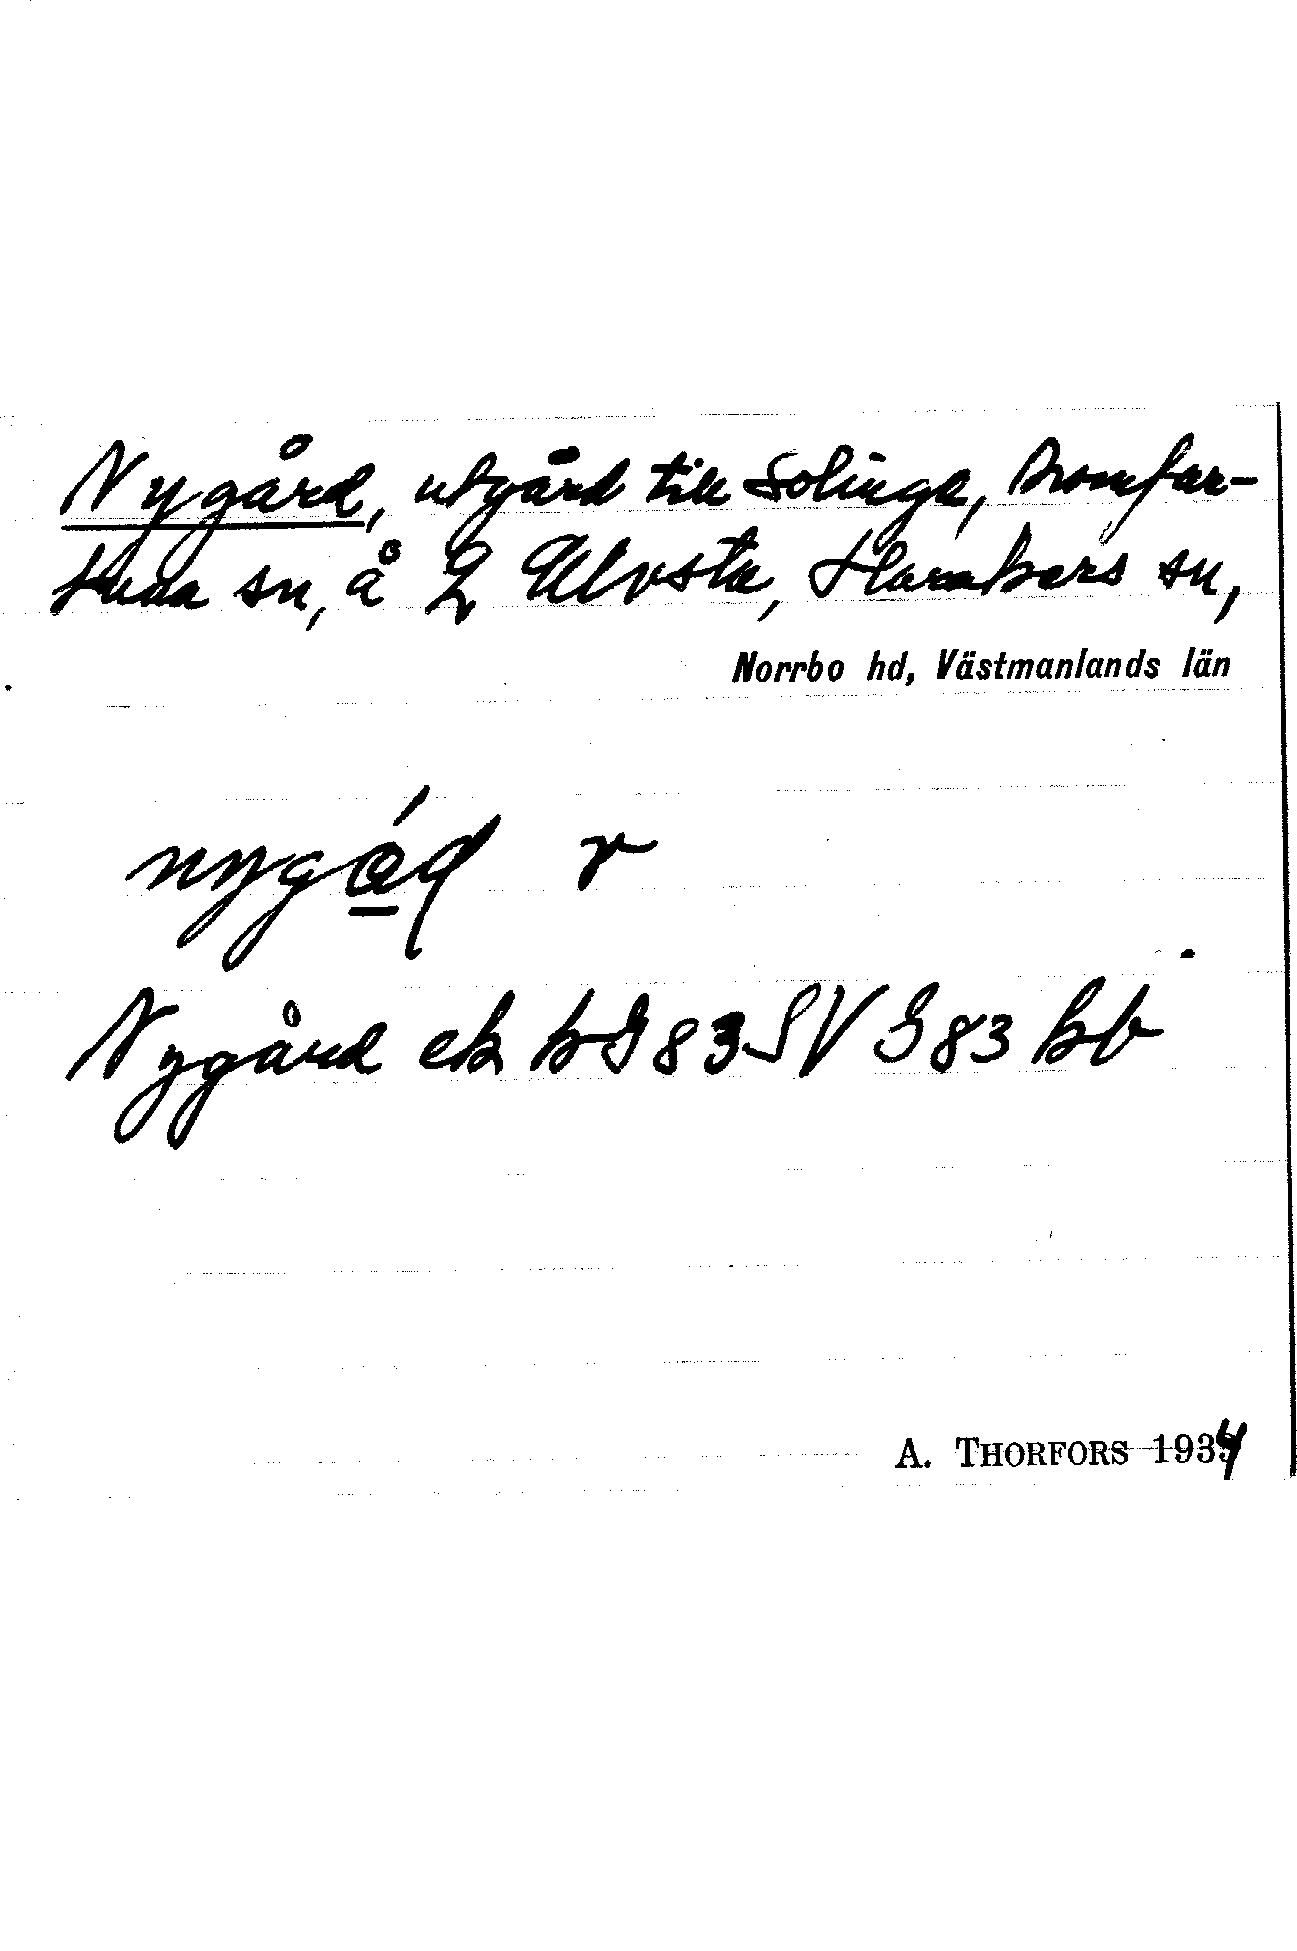 Nygård, utgård till Solinge, Romfar-
tuna sn, å L Ulvsta, Haraker s sn,
Norrbo hd, Västmanlands län
nygǻɖ v
Nygård ek bG 83 SV G 83 bb
A. THORFORS 1934